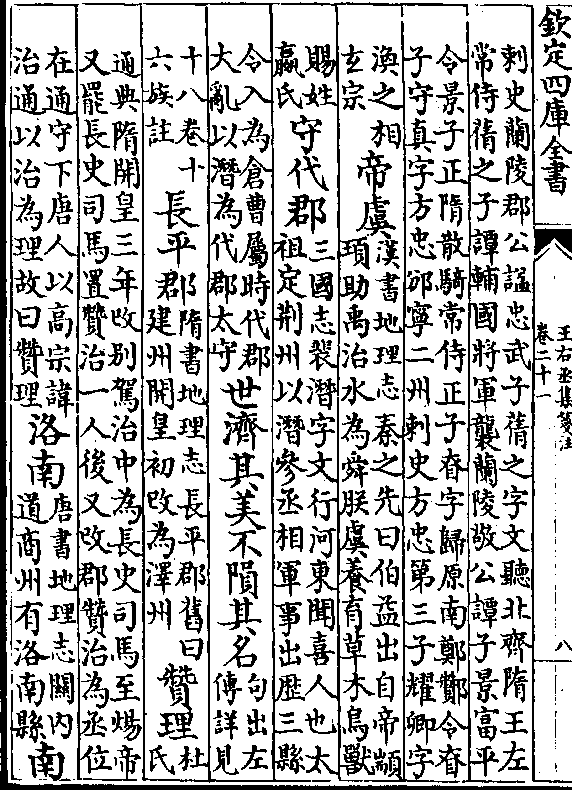 欽定四庫全書
王右丞集箋注
卷二十一
八
刺史蘭陵郡公謚忠武子蒨之字文聽北齊隋王左
常侍蒨之子譚輔國將軍襲蘭陵敬公譚子景富平
令景子正隋散騎常侍正子奆字歸原南鄭酇令奆
子守真字方忠邠寧二州刺史方忠第三子耀卿字
渙之相
玄宗
帝虞
漢書地理志秦之先曰伯益出自帝顓
頊助禹治水為舜朕虞養育草木鳥獸
賜姓
嬴氏
守代郡
三國志裴潛字文行河東聞喜人也太
祖定荆州以潛參丞相軍事出歷三縣
令入為倉曹屬時代郡
大亂以潛為代郡太守
世濟其美不隕其名
句出左
傳詳見
十八卷十
六族註
長平郡
隋書地理志長平郡舊曰
建州開皇初改為澤州
贊理
杜
氏
通典隋開皇三年改别駕治中為長史司馬至煬帝
又罷長史司馬置贊治一人後又改郡贊治為丞位
在通守下唐人以高宗諱
治通以治為理故曰贊理
洛南
唐書地理志關内
道商州有洛南縣
南